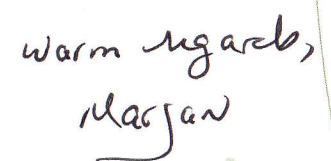 Warm regards,
Marjan